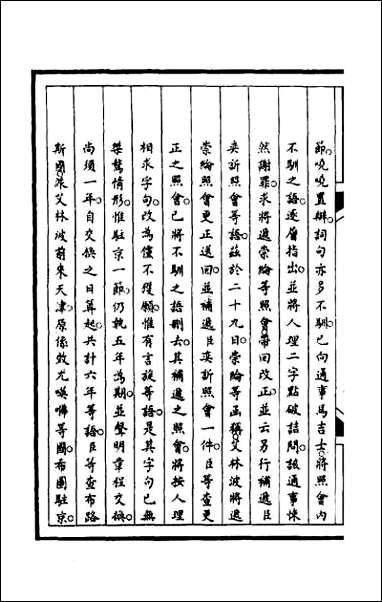 節嘵嘵置辯詞句亦多不馴已向通事馬吉士將照會內
不馴之語逐層指出並將人理二字點破詰問該通事悚
然謝罪求將遞崇綸等照會帶回改正並云另行補遞臣
奕訢照會等語茲於二十九日崇綸等函稱艾林波將遞
崇綸照會更正送回並補遞臣奕訢照會一件臣等查更
正之照會已將不馴之語刪去其補遞之照會將按人理
相求字句改為僅不獲願惟有言旋等語是其字句已無
桀驁情形惟駐京一節仍執五年為期並聲明章程交換
尚須一年自交換之日算起共計六年等語臣等查布路
斯國派艾林波前來天津原係效尤嘆咈等國布國駐京